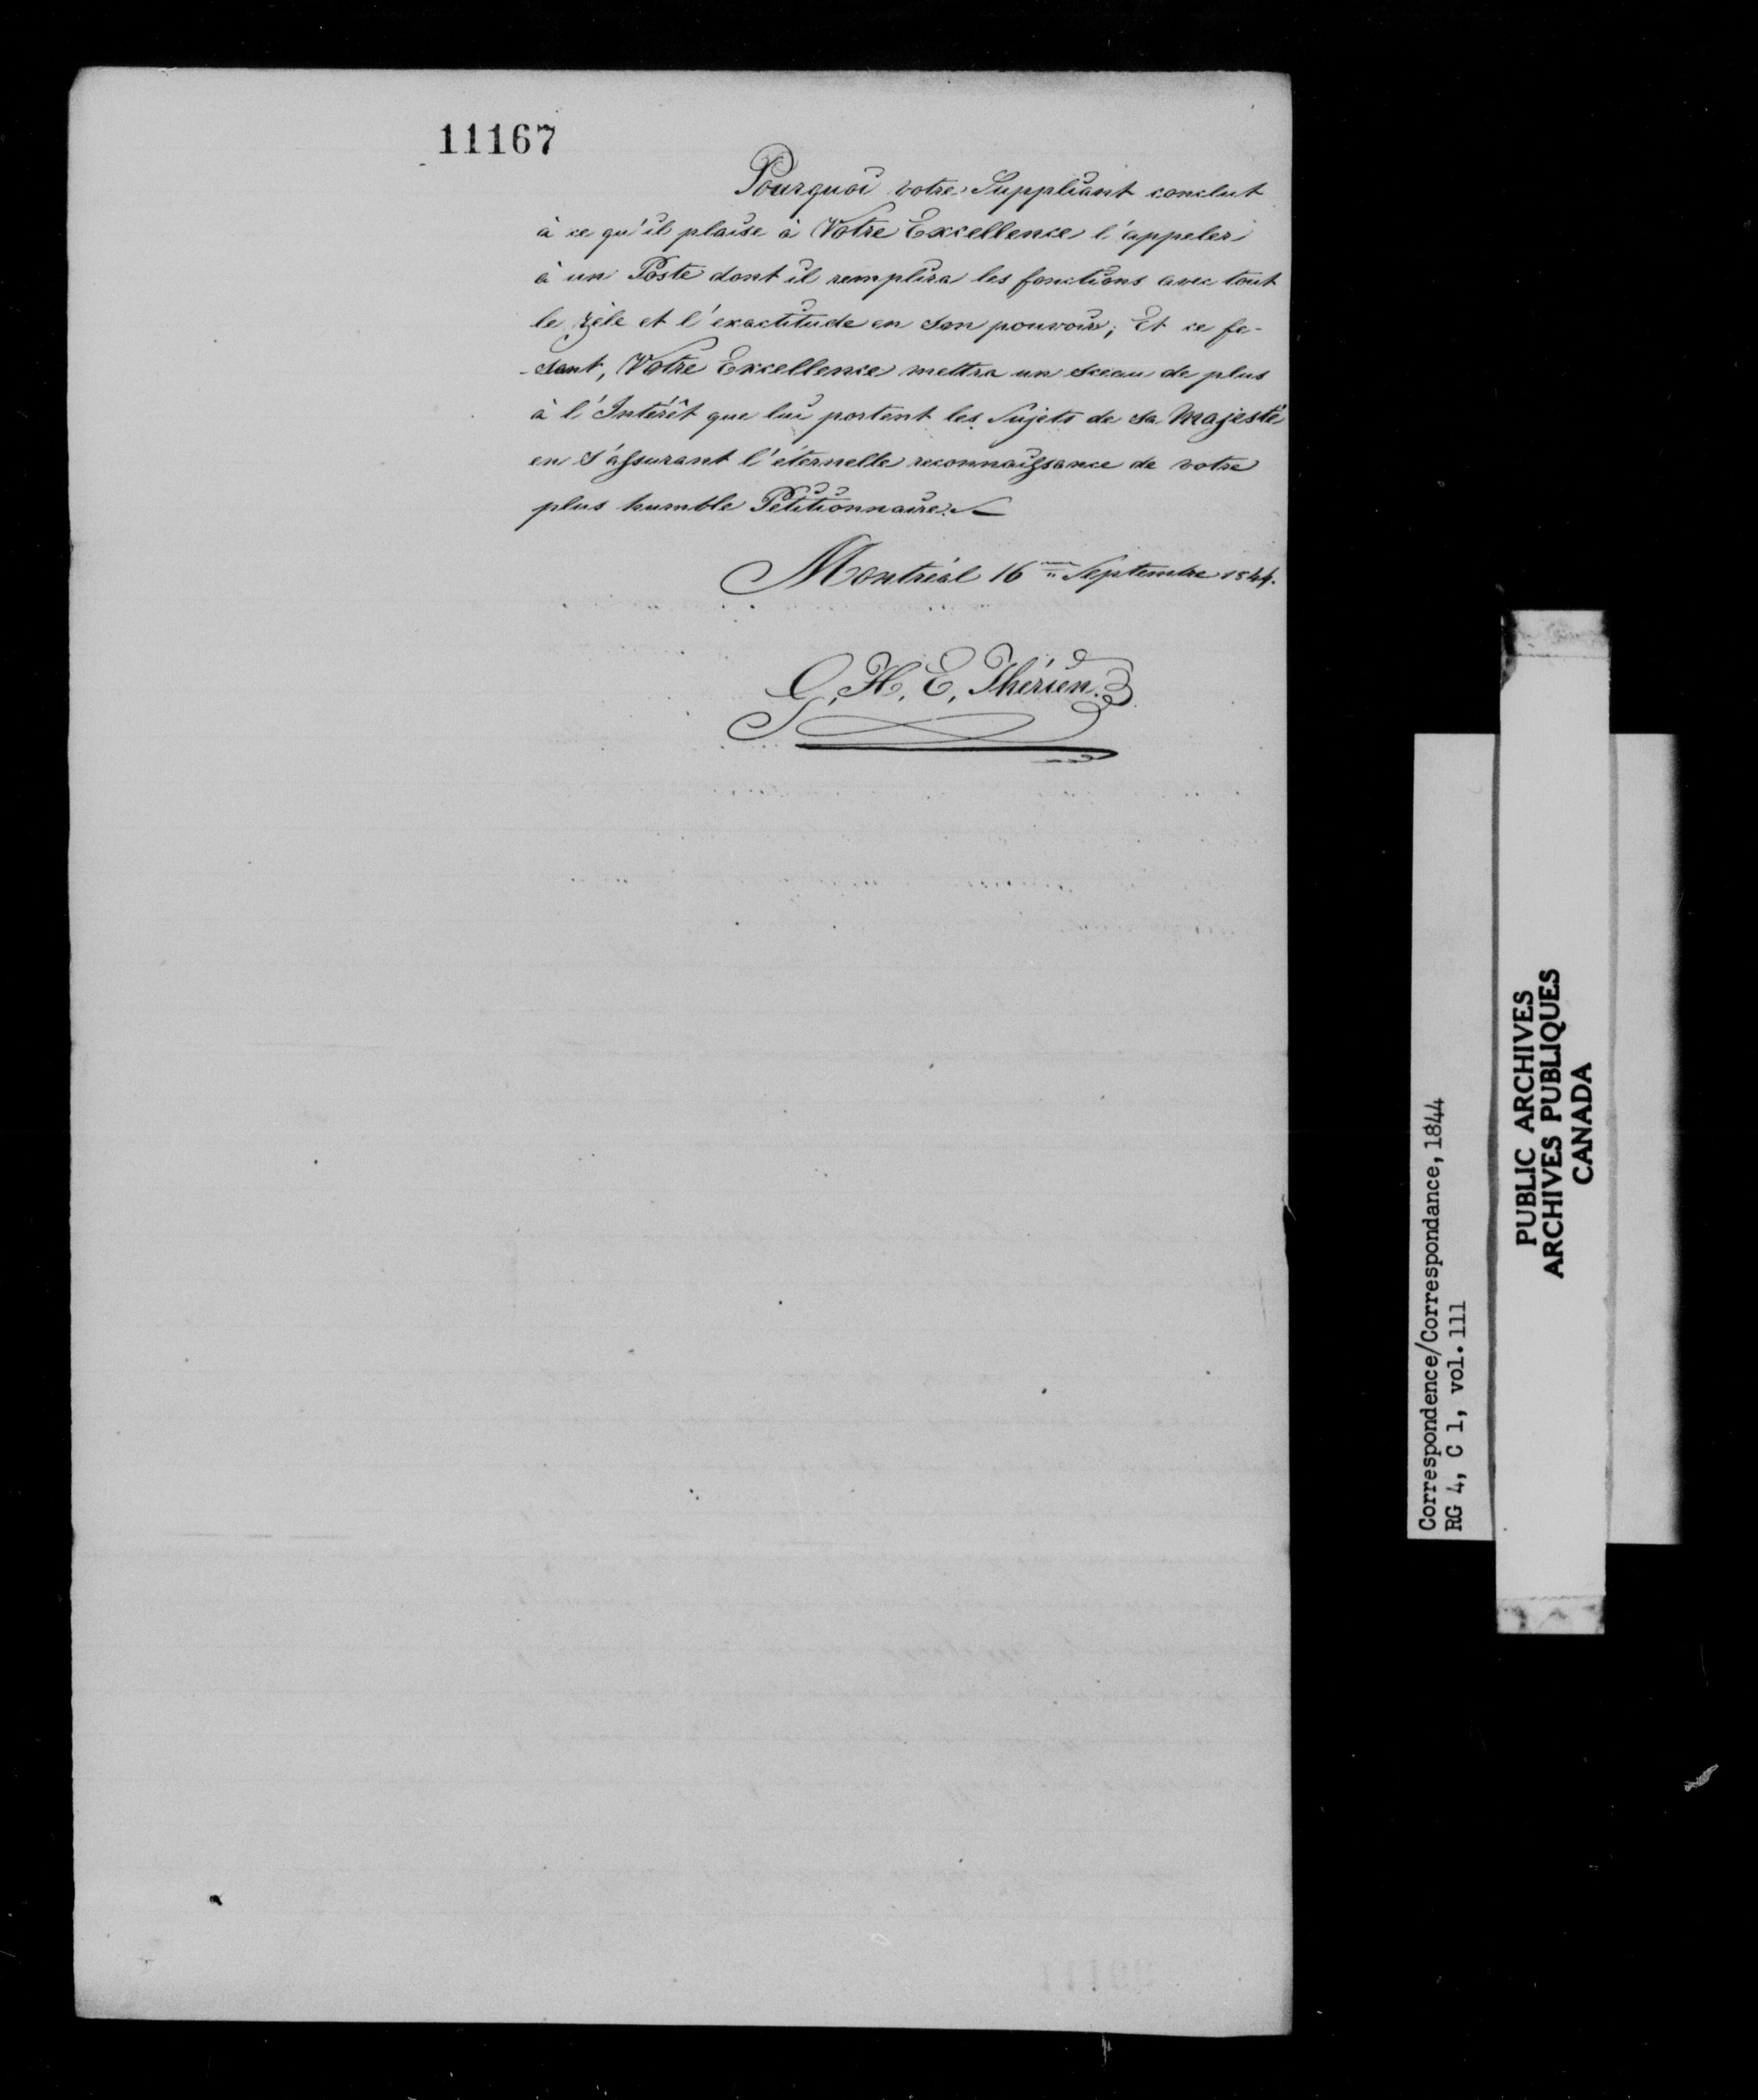 11167
Pourquoi votre Suppliant conclut
à ce qu'il plaise à Votre Excellence l'appeler
à un Poste dont il remplira les fonctions avec tout
le zèle et l'exactitude en son pouvoir; Et ce fe-
-sant, Votre Excellence mettra un sceau de plus
à l'Intérêt que lui portent les Sujets de Sa Majesté
en s'assurant l'éternelle reconnaissance de votre
plus humble Pétitionnaire.
Montréal 16me Septembre 1844.
G. H. E. Thérien.
Correspondence/Correspondance, 1844
RG 4, C 1, vol. 111
PUBLIC ARCHIVES
ARCHIVES PUBLIQUES
CANADA